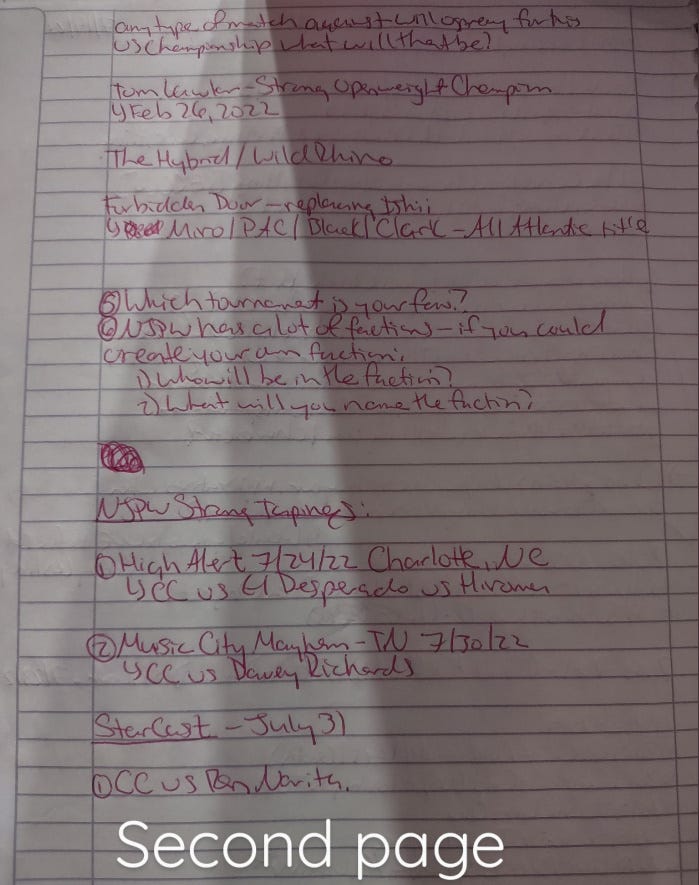 any type of match against will ospreay for his
US Championship what will that be?
Tom Lawlor - Strong Openweight Champion
↳ Feb 26, 2022
The Hybrid / Wild Rhino
Forbidden Door - replacing Ishii
↳ Miro / PAC / Black / Clark - All Atlantic title
⑤ Which tournament is your fav.?
⑥ NJPW has a lot of factions - if you could
create your own faction.
1) Who will be in the faction?
2) What will you name the faction?
NJPW Strong Tapings:
① High Alert 7/24/22 Charlotte, NC
↳ CC vs El Desperado vs Hiromu
② Music City Mayhem - TN 7/30/22
↳ CC vs Davey Richards
StarCast - July 31
① CC vs Ren Narita.
Second page